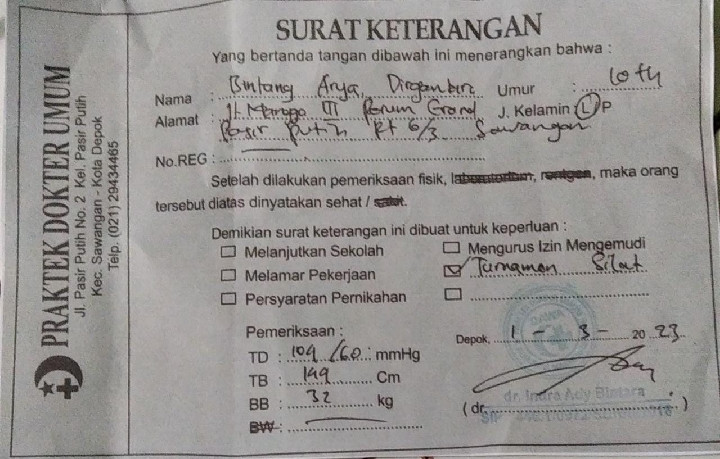 PRAKTEK DOKTER UMUM
Jl. Pasir Putih No. 2 Kel. Pasir Putih
Kec. Sawangan - Kota Depok
Telp. (021) 29434465
SURAT KETERANGAN
Yang bertanda tangan dibawah ini menerangkan bahwa :
Nama : Bintang Arya Umur : 10 th
Alamat : Jl. III Perum Grand J. Kelamin : L/P
Pasir Putih Rt 6/3 Sawangan
No.REG :
Setelah dilakukan pemeriksaan fisik, laboratorium, rontgen, maka orang
tersebut diatas dinyatakan sehat / sakit.
Demikian surat keterangan ini dibuat untuk keperluan :
Melanjutkan Sekolah
Mengurus Izin Mengemudi
Melamar Pekerjaan
Turnamen Silat
Persyaratan Pernikahan
Pemeriksaan :
Depok, 1 - 3 - 2023
TD : 104/60 mmHg
TB : 149 Cm
BB : 32 kg
BW :
(dr. )
dr. Indra Ady Bintara